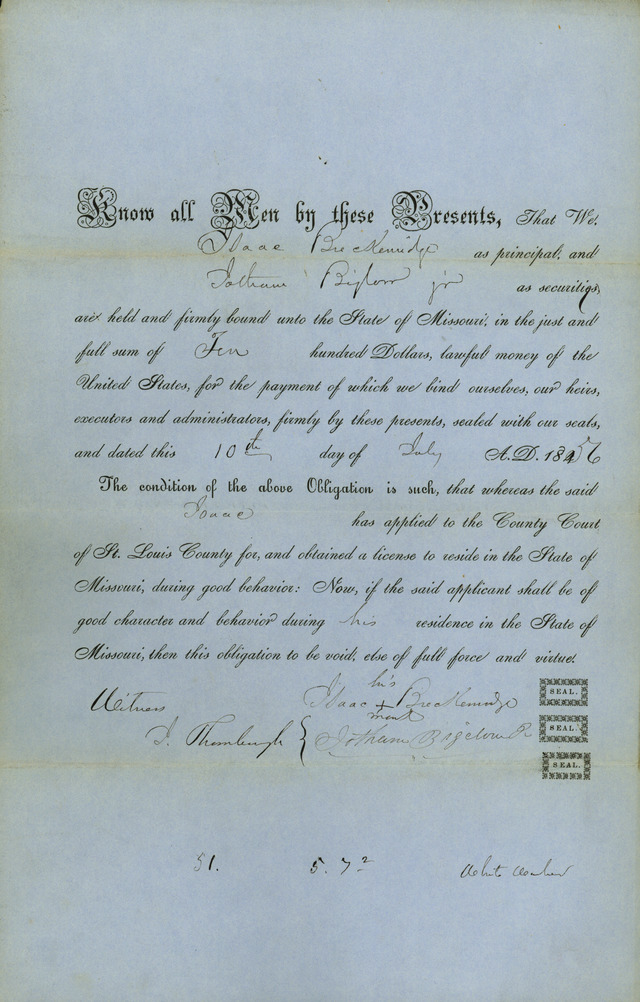 Know all Men by these Presents, That We,
Isaac Breckenridge as principal, and
Jotham Bigelow jr as securities,
are held and firmly bound unto the State of Missouri, in the just and
full sum of Ten hundred Dollars, lawful money of the
United States, for the payment of which we bind ourselves, our heirs,
executors and administrators, firmly by these presents, sealed with our seals,
and dated this 10th day of July A.D. 1856
The condition of the above Obligation is such, that whereas the said
Isaac has applied to the County Court
of St. Louis County for, and obtained a license to reside in the State of
Missouri, during good behavior: Now, if the said applicant shall be of
good character and behavior during his residence in the State of
Missouri, then this obligation to be void, else of full force and virtue.
his
Witness Isaac + Breckenridge SEAL.
mark
J. Thornburgh { Jotham Bigelow Jr SEAL.
SEAL.
51. 5.7²